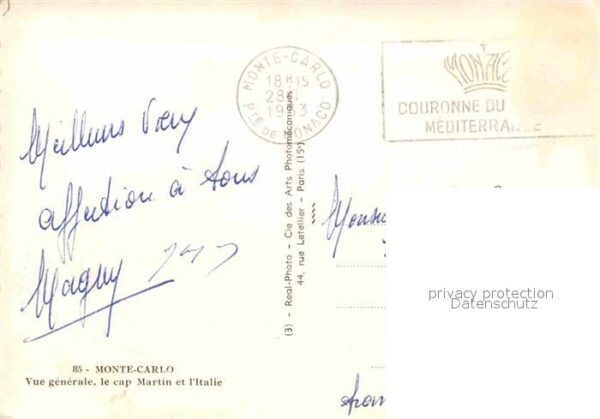 Meilleurs Vœux
affection à tous
Maguy
85 - MONTE-CARLO
Vue générale, le cap Martin et l'Italie
(3) - Real-Photo - Cie des Arts Photomécaniques
44, rue Letellier - Paris (15e)
MONTE-CARLO
18H15
28
1963
PTE DE MONACO
MONACO
COURONNE DU
MÉDITERRANÉE
privacy protection
Datenschutz